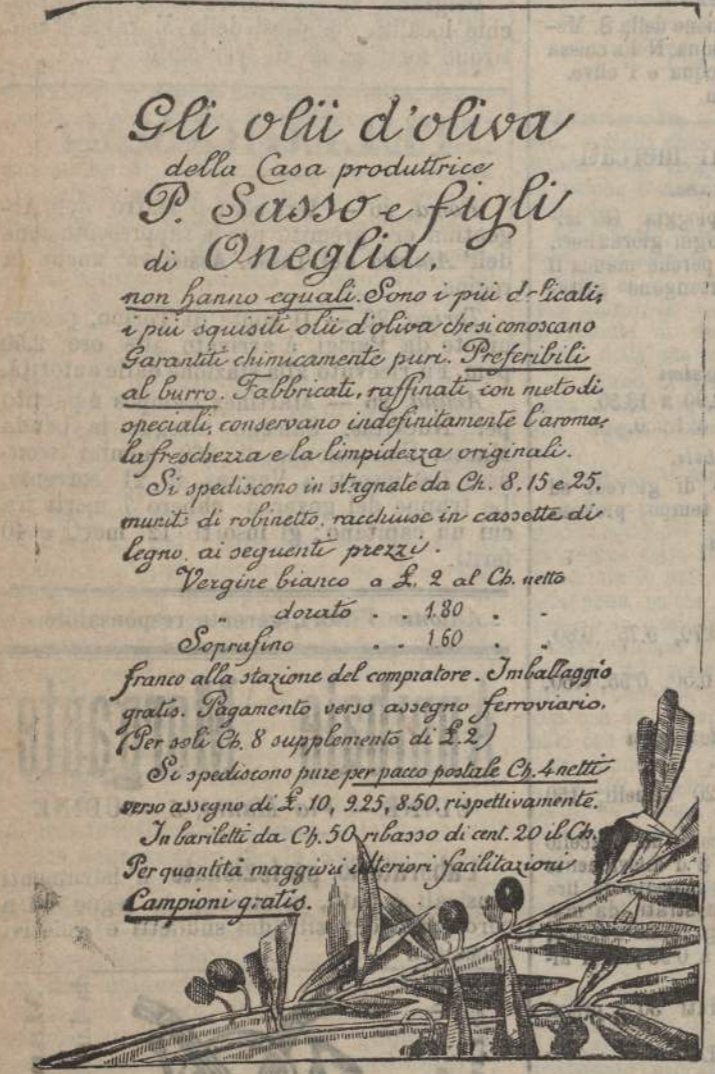 Gli olii d'oliva
della Casa produttrice
P. Sasso e figli
di Oneglia,
non hanno eguali. Sono i più delicati,
i più squisiti olii d'oliva che si conoscano
Garantiti chimicamente puri. Preferibili
al burro. Fabbricati, raffinati con metodi
speciali, conservano indefinitamente l'aroma,
la freschezza e la limpidezza originali.
Si spediscono in stagnate da Ch. 8, 15 e 25,
munite di robinetto, racchiuse in cassette di
legno, ai seguenti prezzi.
Vergine bianco a £. 2 al Ch. netto
„ dorato . . 1.80 . .
Soprafino . . 1.60 . .
franco alla stazione del compratore. Imballaggio
gratis. Pagamento verso assegno ferroviario.
(Per soli Ch. 8 supplemento di £.2)
Si spediscono pure per pacco postale Ch. 4 netti
verso assegno di £. 10, 9.25, 8.50, rispettivamente.
In bariletti da Ch. 50 ribasso di cent. 20 il Ch.
Per quantità maggiori ulteriori facilitazioni
Campioni gratis.